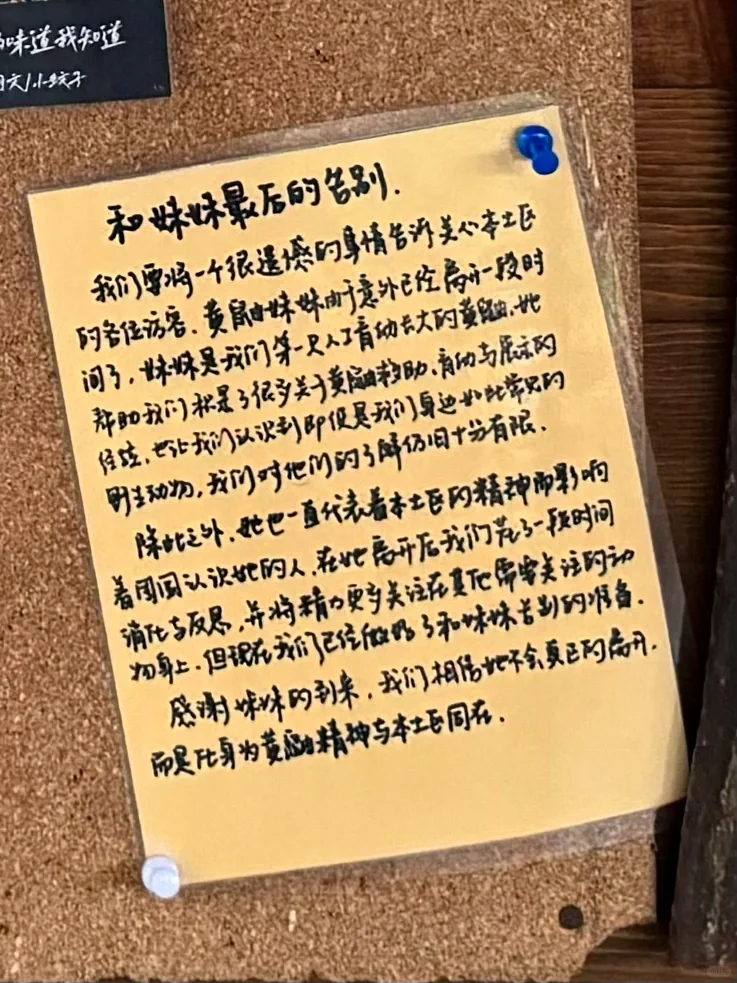 味道我知道
小饺子
和妹妹最后的告别.
我们要将一个很遗憾的事情告诉关心本土区
的各位访客.黄鼠由妹妹由于意外已经离开一段时
间了,妹妹是我们第一只人工育幼长大的黄鼬.她
帮助我们积累了很多关于黄鼬救助、育幼与展示的
经验,也让我们认识到即便是我们身边如此常见的
野生动物,我们对他们的了解仍旧十分有限.
除此之外,她也一直代表着本土区的精神而影响
着周围认识她的人.在她离开后我们花了一段时间
消化与反思,并将精力更多关注在其他需要关注的动
物身上.但现在我们已经做好了和妹妹告别的准备.
感谢妹妹的到来,我们相信她不会真正的离开.
而是化身为黄鼬精神与本土区同在.